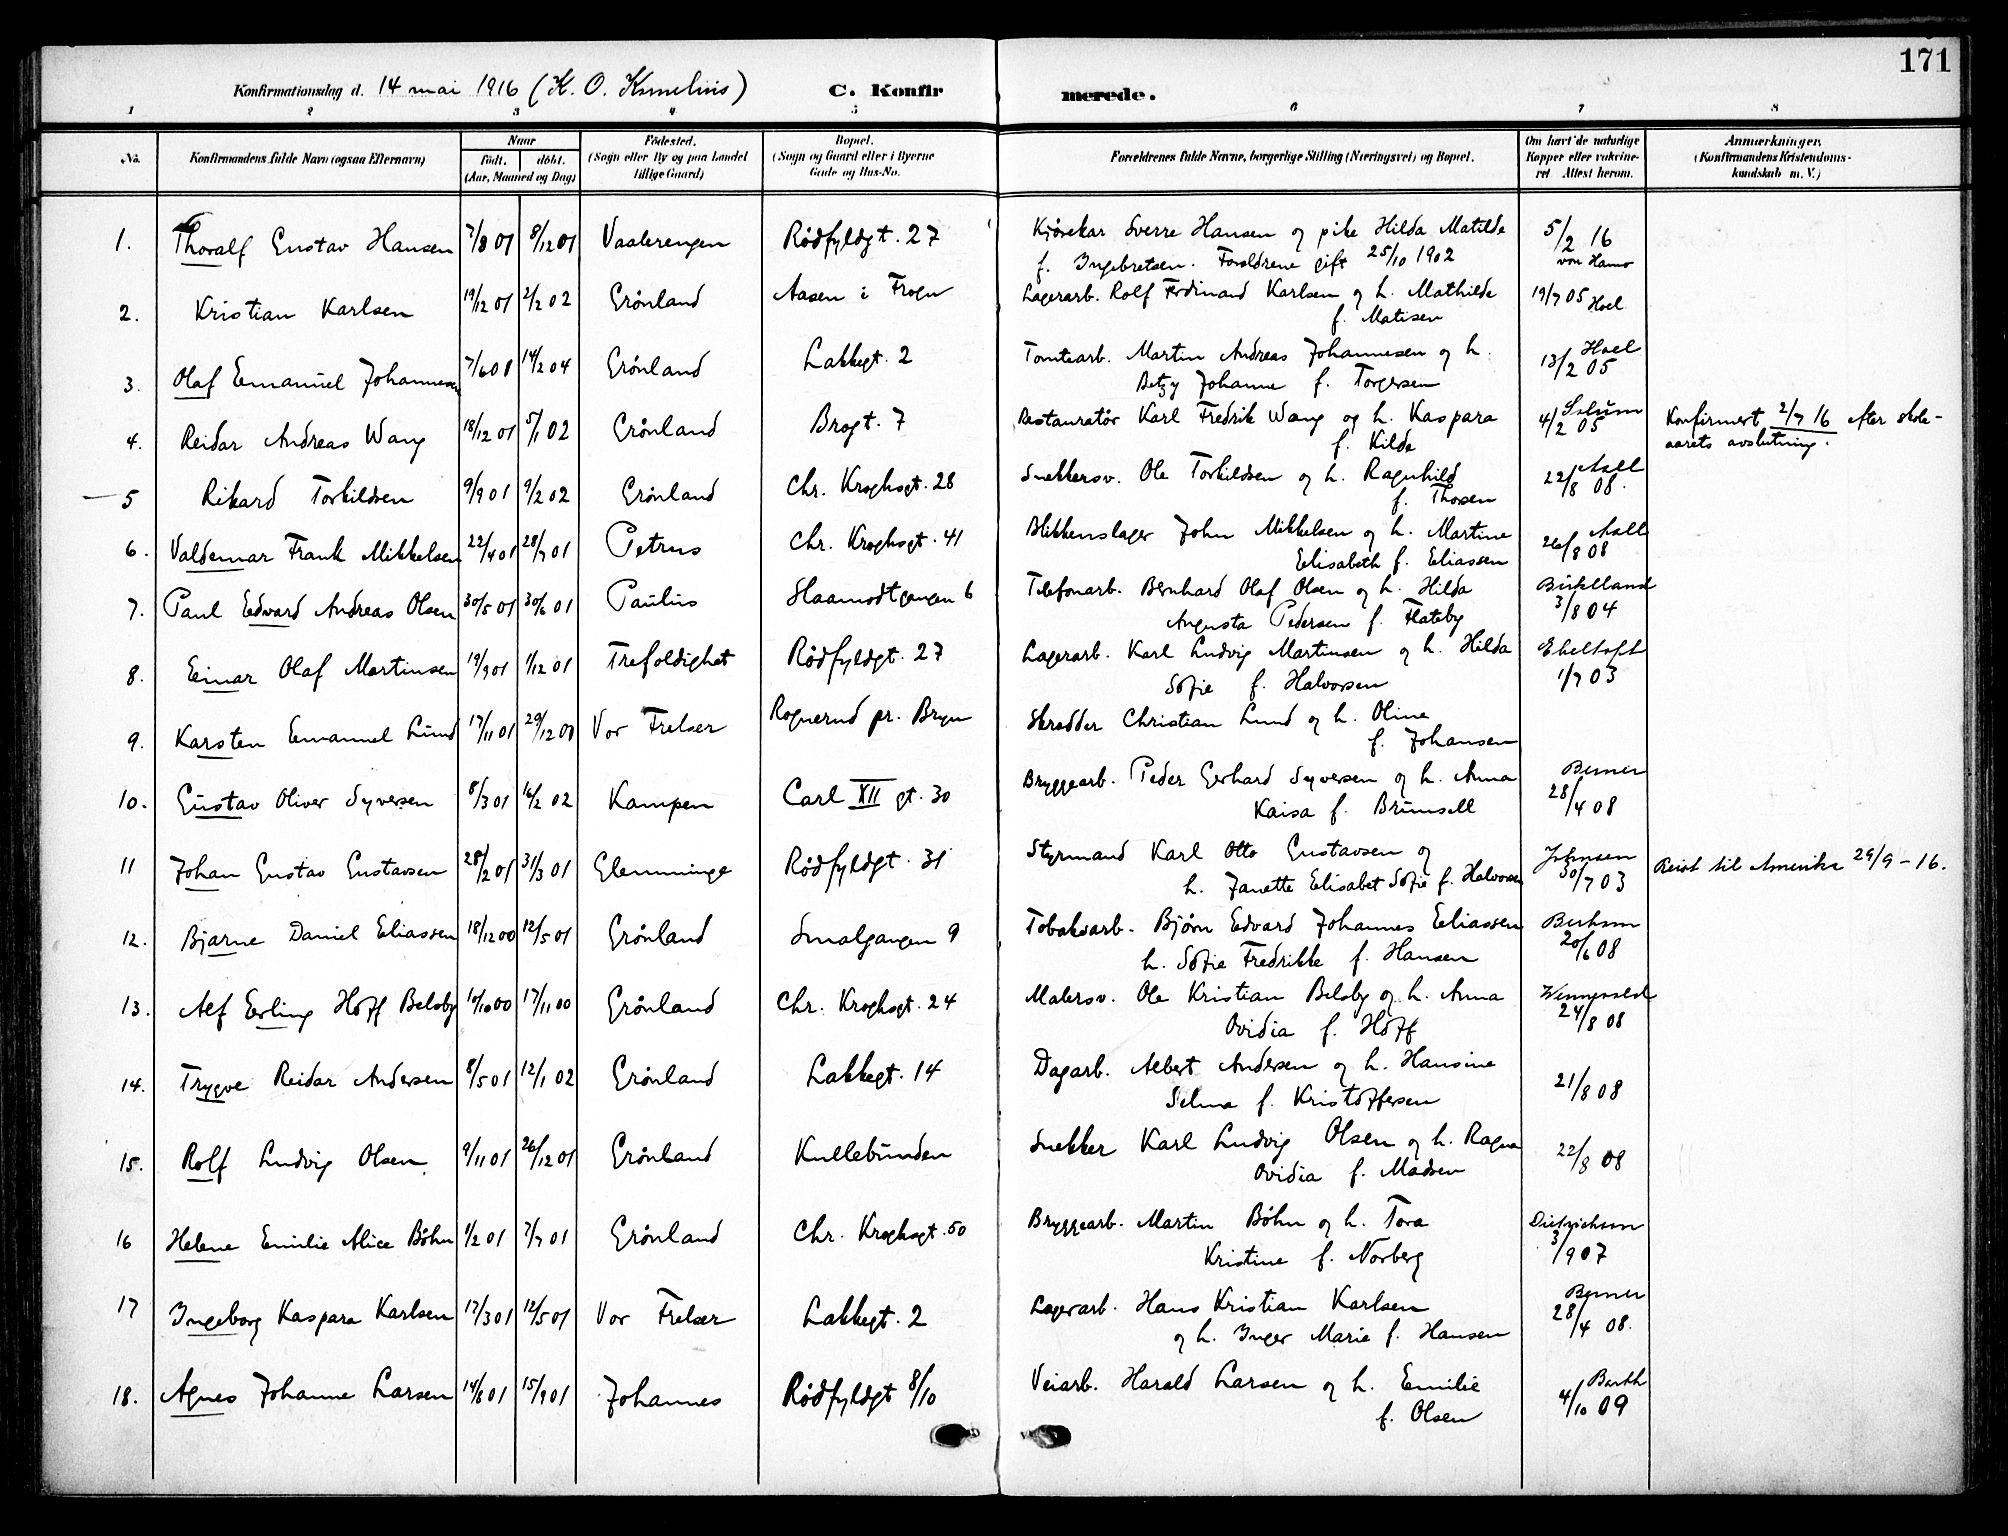 171
Konfirmationsdag d. 14 mai 1916 (K. O. Kornelius) C. Konfirmerede.
1 2 3 4 5 6 7 8
No.
Konfirmandens fulde Navn (ogsaa Efternavn)
Naar
født. døbt.
(Aar, Maaned og Dag)
Fødested.
(Sogn eller By og paa Landet
tillige Gaard)
Bopæl.
(Sogn og Gaard eller i Byerne
Gade og Hus-No.
Forældrenes fulde Navne, borgerlige Stilling (Næringsvei) og Bopæl.
Om havt de naturlige
Kopper eller vakcine-
ret. Attest herom.
Anmærkninger.
(Konfirmandens Kristendoms-
kundskab m. V.)
1. Thoralf Gustav Hansen 7/8 01 8/12 01 Vaalerengen Rødfyldgt. 27 Kjørekar Sverre Hansen og pike Hilda Matilde 5/2 16
f. Ingebretsen. Forældrene gift 25/10 1902
2. Kristian Karlsen 19/12 01 2/2 02 Grønland Aasen i Frogn Lagerarb. Rolf Ferdinand Karlsen og h. Mathilde 19/7 05 Hoel
f. Matisen
3. Olaf Emanuel Johannesen 7/6 01 14/2 04 Grønland Lakkegt. 2 Tomtearb. Martin Andreas Johannesen og h. 13/2 05 Hoel
Betzy Johanne f. Torgersen
4. Reidar Andreas Wang 18/12 01 5/1 02 Grønland Brogt. 7 Restauratør Karl Fredrik Wang og h. Kaspara 4/2 05 Konfirmert 2/7 16 efter skole-
f. Kilde aarets avslutning.
5 Rikard Torkildsen 9/9 01 9/2 02 Grønland Chr. Kroghsgt. 28 Snekkersv. Ole Torkildsen og h. Ragnhild 22/8 08. Aall
f. Thosen
6. Valdemar Frank Mikkelsen 22/4 01 28/7 01 Petrus Chr. Kroghsgt. 41 Blikkenslager John Mikkelsen og h. Martine 26/8 08 Aall
Elisabeth f. Eliassen
7. Paul Edvard Andreas Olsen 30/5 01 30/6 01 Paulus Haamodtgangen 6 Telefonarb. Bernhard Olaf Olsen og h. Hilda Birkelland
Augusta Pedersen f. Flateby 3/8 04
8. Einar Olaf Martinsen 19/9 01 1/12 01 Trefoldighet Rødfyldgt. 27 Lagerarb. Karl Ludvig Martinsen og h. Hilda Ebeltoft
Sofie f. Halvorsen 1/7 03
9. Karsten Emanuel Lund 17/11 01 29/12 01 Vor Frelser Rognerud pr. Bryn Skredder Christian Lund og h. Oline
f. Johansen
10. Gustav Oliver Syversen 8/3 01 16/2 02 Kampen Carl XII gt. 30 Bryggearb. Peder Gerhard Syversen og h. Anna Berner
Kaisa f. Brunsell 28/4 08
11 Johan Gustav Gustavsen 28/2 01 31/3 01 Glemminge Rødfyldgt. 31 Styrmand Karl Otto Gustavsen og Johnsen
h. Janette Elisabet Sofie f. Halvorsen 30/7 03 Reist til Amerika 29/9 - 16.
12. Bjarne Daniel Eliassen 18/12 00 12/5 01 Grønland Smalgangen 9 Tobaksarb. Bjørn Edvard Johannes Eliassen
h. Sofie Fredrikke f. Hansen 20/6 08
13. Alf Erling Hoff Belsby 10/10 00 17/11 00 Grønland Chr. Kroghsgt. 24 Malersv. Ole Kristian Belsby og h. Anna
Ovidia f. Hoff 24/8 08
14. Trygve Reidar Andersen 8/5 01 12/1 02 Grønland Lakkegt. 14 Dagarb. Albert Andersen og h. Hansine
Selma f. Kristoffersen 21/8 08
15. Rolf Ludvig Olsen 9/11 01 26/12 01 Grønland Kullebunden Snekker Karl Ludvig Olsen og h. Ragna
Ovidia f. Madsen 22/8 08
16 Helene Emilie Alice Bøhn 1/2 01 7/7 01 Grønland Chr. Kroghsgt. 50 Bryggearb. Martin Bøhn og h. Tora Dietrichson
Kristine f. Norberg 3/9 07
17 Ingeborg Kaspara Karlsen 17/3 01 12/5 01 Vor Frelser Lakkegt. 2 Lagerarb. Hans Kristian Karlsen Berner
og h. Inger Marie f. Hansen 28/4 08.
18. Agnes Johanne Larsen 14/8 01 15/9 01 Johannes Rødfyldgt 8/10 Veiarb. Harald Larsen og h. Emilie Barth
f. Olsen 4/10 09